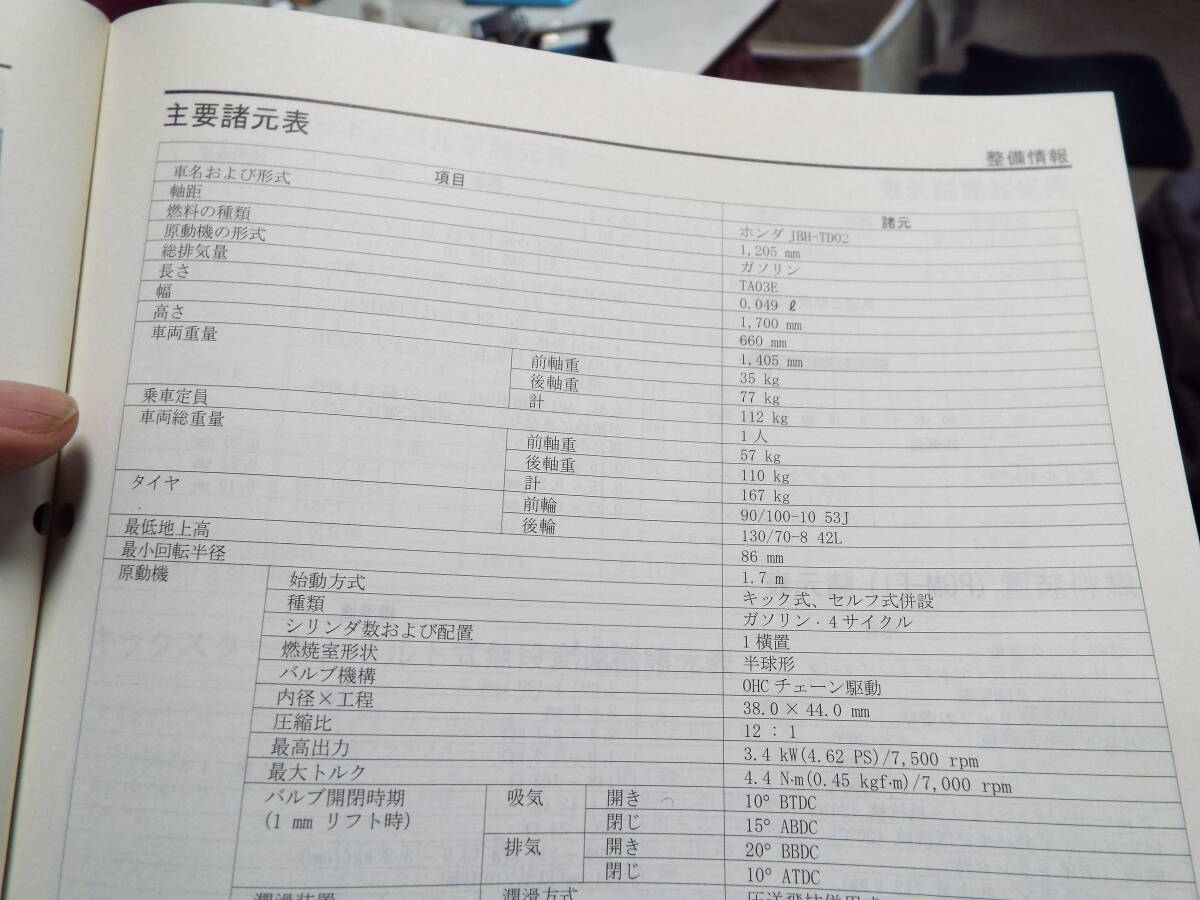 主要諸元表
整備情報
項目 諸元
車名および形式 ホンダ JBH-TD02
軸距 1,205 mm
燃料の種類 ガソリン
原動機の形式 TA03E
総排気量 0.049 ℓ
長さ 1,700 mm
幅 660 mm
高さ 1,405 mm
車両重量 前軸重 35 kg
後軸重 77 kg
計 112 kg
乗車定員 1人
車両総重量 前軸重 57 kg
後軸重 110 kg
計 167 kg
タイヤ 前輪 90/100-10 53J
後輪 130/70-8 42L
最低地上高 86 mm
最小回転半径 1.7 m
原動機 始動方式 キック式、セルフ式併設
種類 ガソリン・4サイクル
シリンダ数および配置 1横置
燃焼室形状 半球形
バルブ機構 OHC チェーン駆動
内径×工程 38.0 × 44.0 mm
圧縮比 12 : 1
最高出力 3.4 kW(4.62 PS)/7,500 rpm
最大トルク 4.4 N·m(0.45 kgf·m)/7,000 rpm
バルブ開閉時期 吸気 開き 10° BTDC
(1 mm リフト時) 閉じ 15° ABDC
排気 開き 20° BBDC
閉じ 10° ATDC
潤滑装置 潤滑方式 圧送飛沫併用式